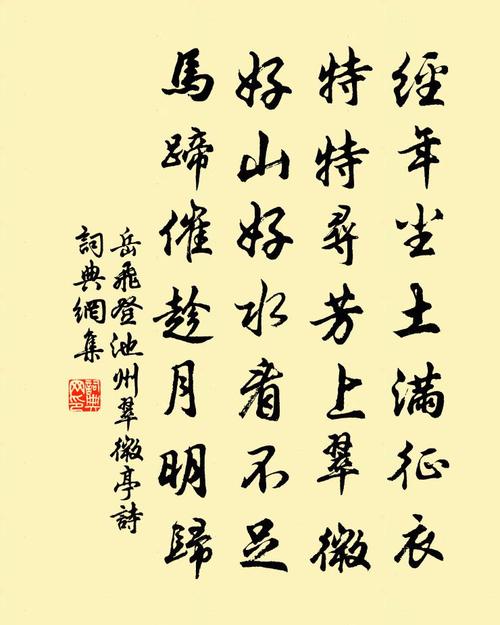 經年尘土滿征衣
特特尋芳上翠微
好山好水看不足
馬蹄催趁月明歸
岳飛登池州翠微亭詩
詞典網集